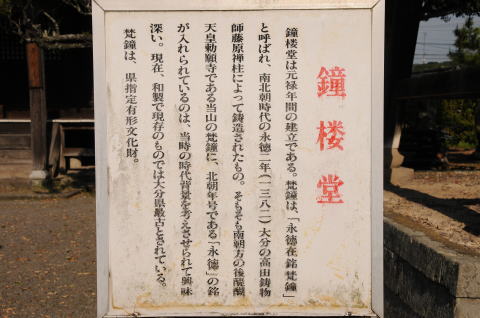 鐘楼堂
鐘楼堂は元禄年間の建立である。梵鐘は、「永徳在銘梵鐘」
と呼ばれ、南北朝時代の永徳二年(一三八二)大分の高田鋳物
師藤原禅柱によって鋳造されたもの。そもそも南朝方の後醍醐
天皇勅願寺である当山の梵鐘に、北朝年号である「永徳」の銘
が入れられているのは、当時の時代背景を考えさせられて興味
深い。現在、和製で現存のものでは大分県最古とされている。
梵鐘は、県指定有形文化財。